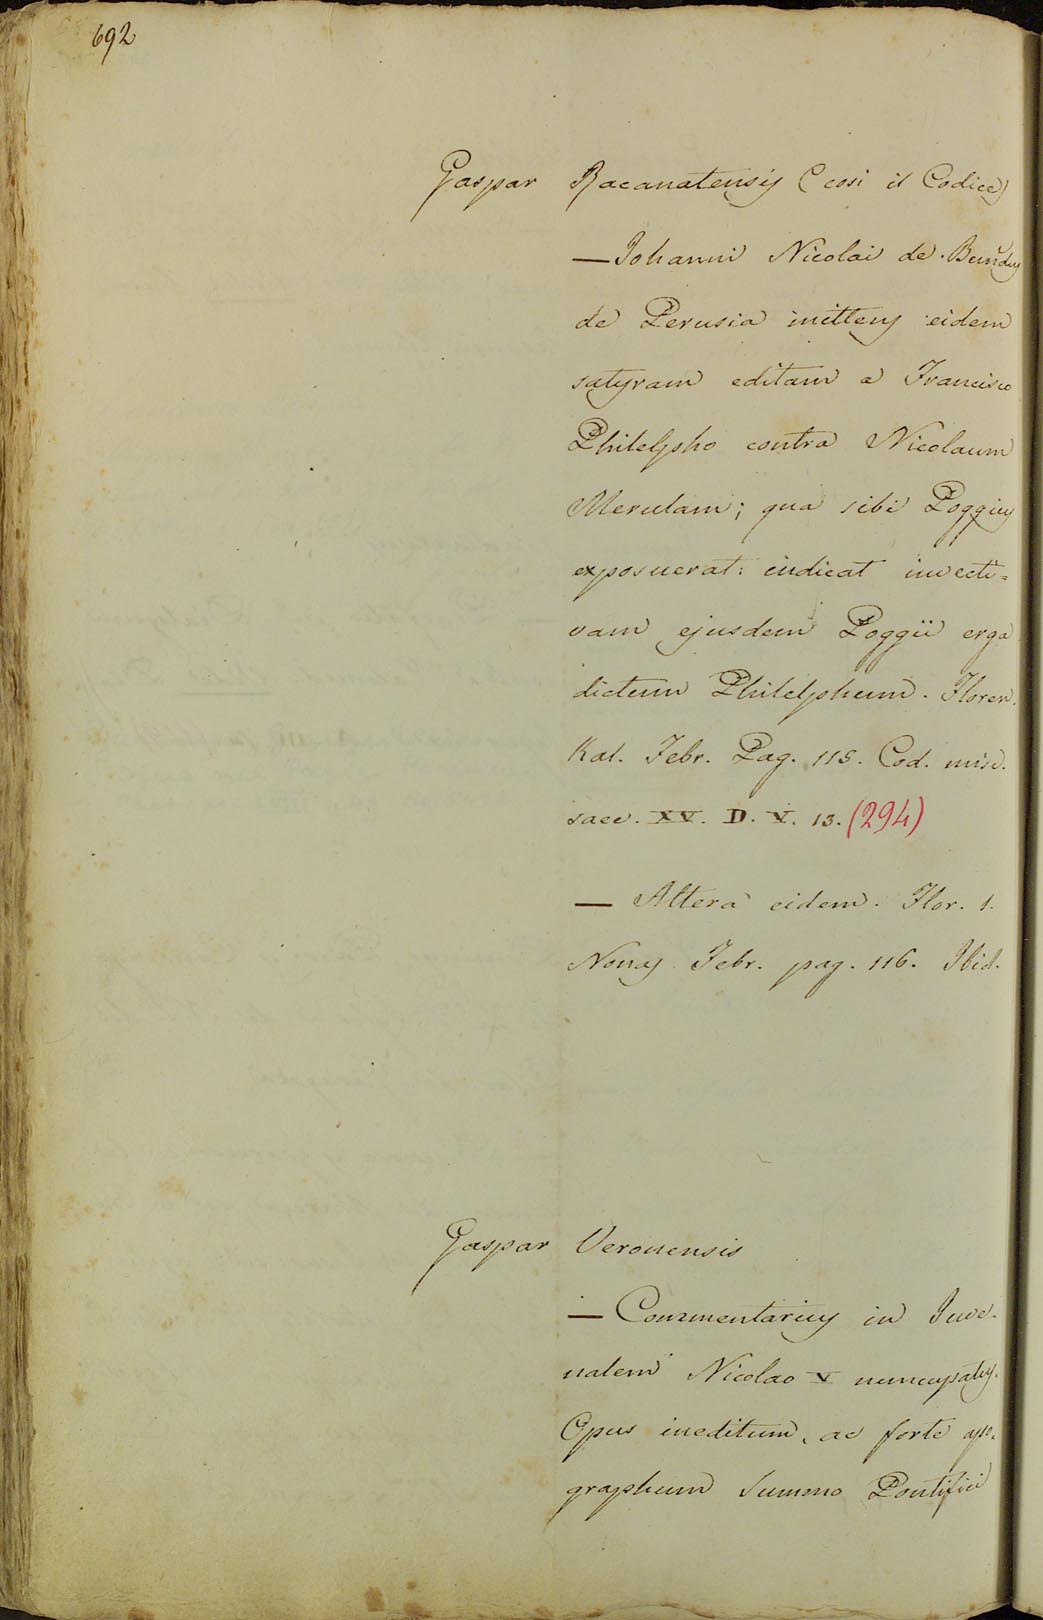 692
Gaspar Racanatensis (così il Codice)
— Johanni Nicolai de
de Perusia mittens eidem
satyram editam a Francisco
Philelpho contra Nicolaum
Merulam; qua sibi Poggius
exposuerat: indicat invecti=
vam ejusdem Poggii erga
dictum Philelphum. Floren.
Kal. Febr. Pag. 115. Cod. misc.
saec. XV. D. V. 13. (294)
— Altera eidem. Flor. 1.
Nonas Febr. pag. 116. Ibid.
Gaspar Veronensis
— Commentarius in Juve-
nalem Nicolao V nuncupatus.
Opus ineditum, ac forte apo-
graphum Summo Pontifici